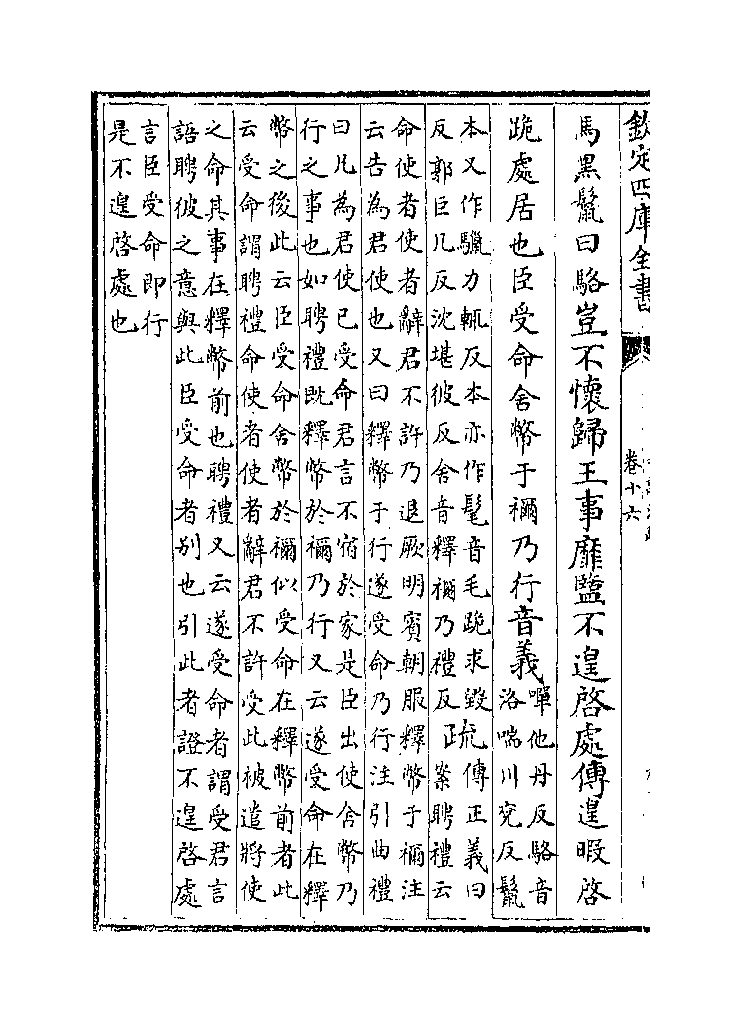 欽定四庫全書
卷十六
馬黑鬛曰駱豈不懷歸王事靡盬不遑啓處傳遑暇啓
跪處居也臣受命舍幣于禰乃行音義
嘽他丹反駱音
洛喘川兖反鬛
本又作驖力輒反本亦作髦音毛跪求毀
反郭巨几反沈堪彼反舍音釋禰乃禮反
疏
傳正義曰
案聘禮云
命使者使者辭君不許乃退厥明賔朝服釋幣于禰注
云告為君使也又曰釋幣于行遂受命乃行注引曲禮
曰凡為君使已受命君言不宿於家是臣出使舍幣乃
行之事也如聘禮既釋幣於禰乃行又云遂受命在釋
幣之後此云臣受命舍幣於禰似受命在釋幣前者此
云受命謂聘禮命使者使者辭君不許受此被遣將使
之命其事在釋幣前也聘禮又云遂受命者謂受君言
語聘彼之意與此臣受命者别也引此者證不遑啓處
言臣受命即行
是不遑啓處也